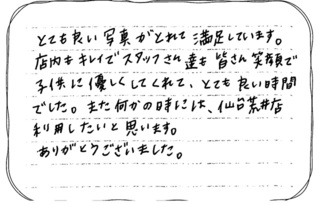 とても良い写真がとれて満足しています。
店内もキレイでスタッフさん達も皆さん笑顔で
子供に優しくしてくれて、とても良い時間
でした。また何かの時には、仙台荒井店
利用したいと思います。
ありがとうございました。